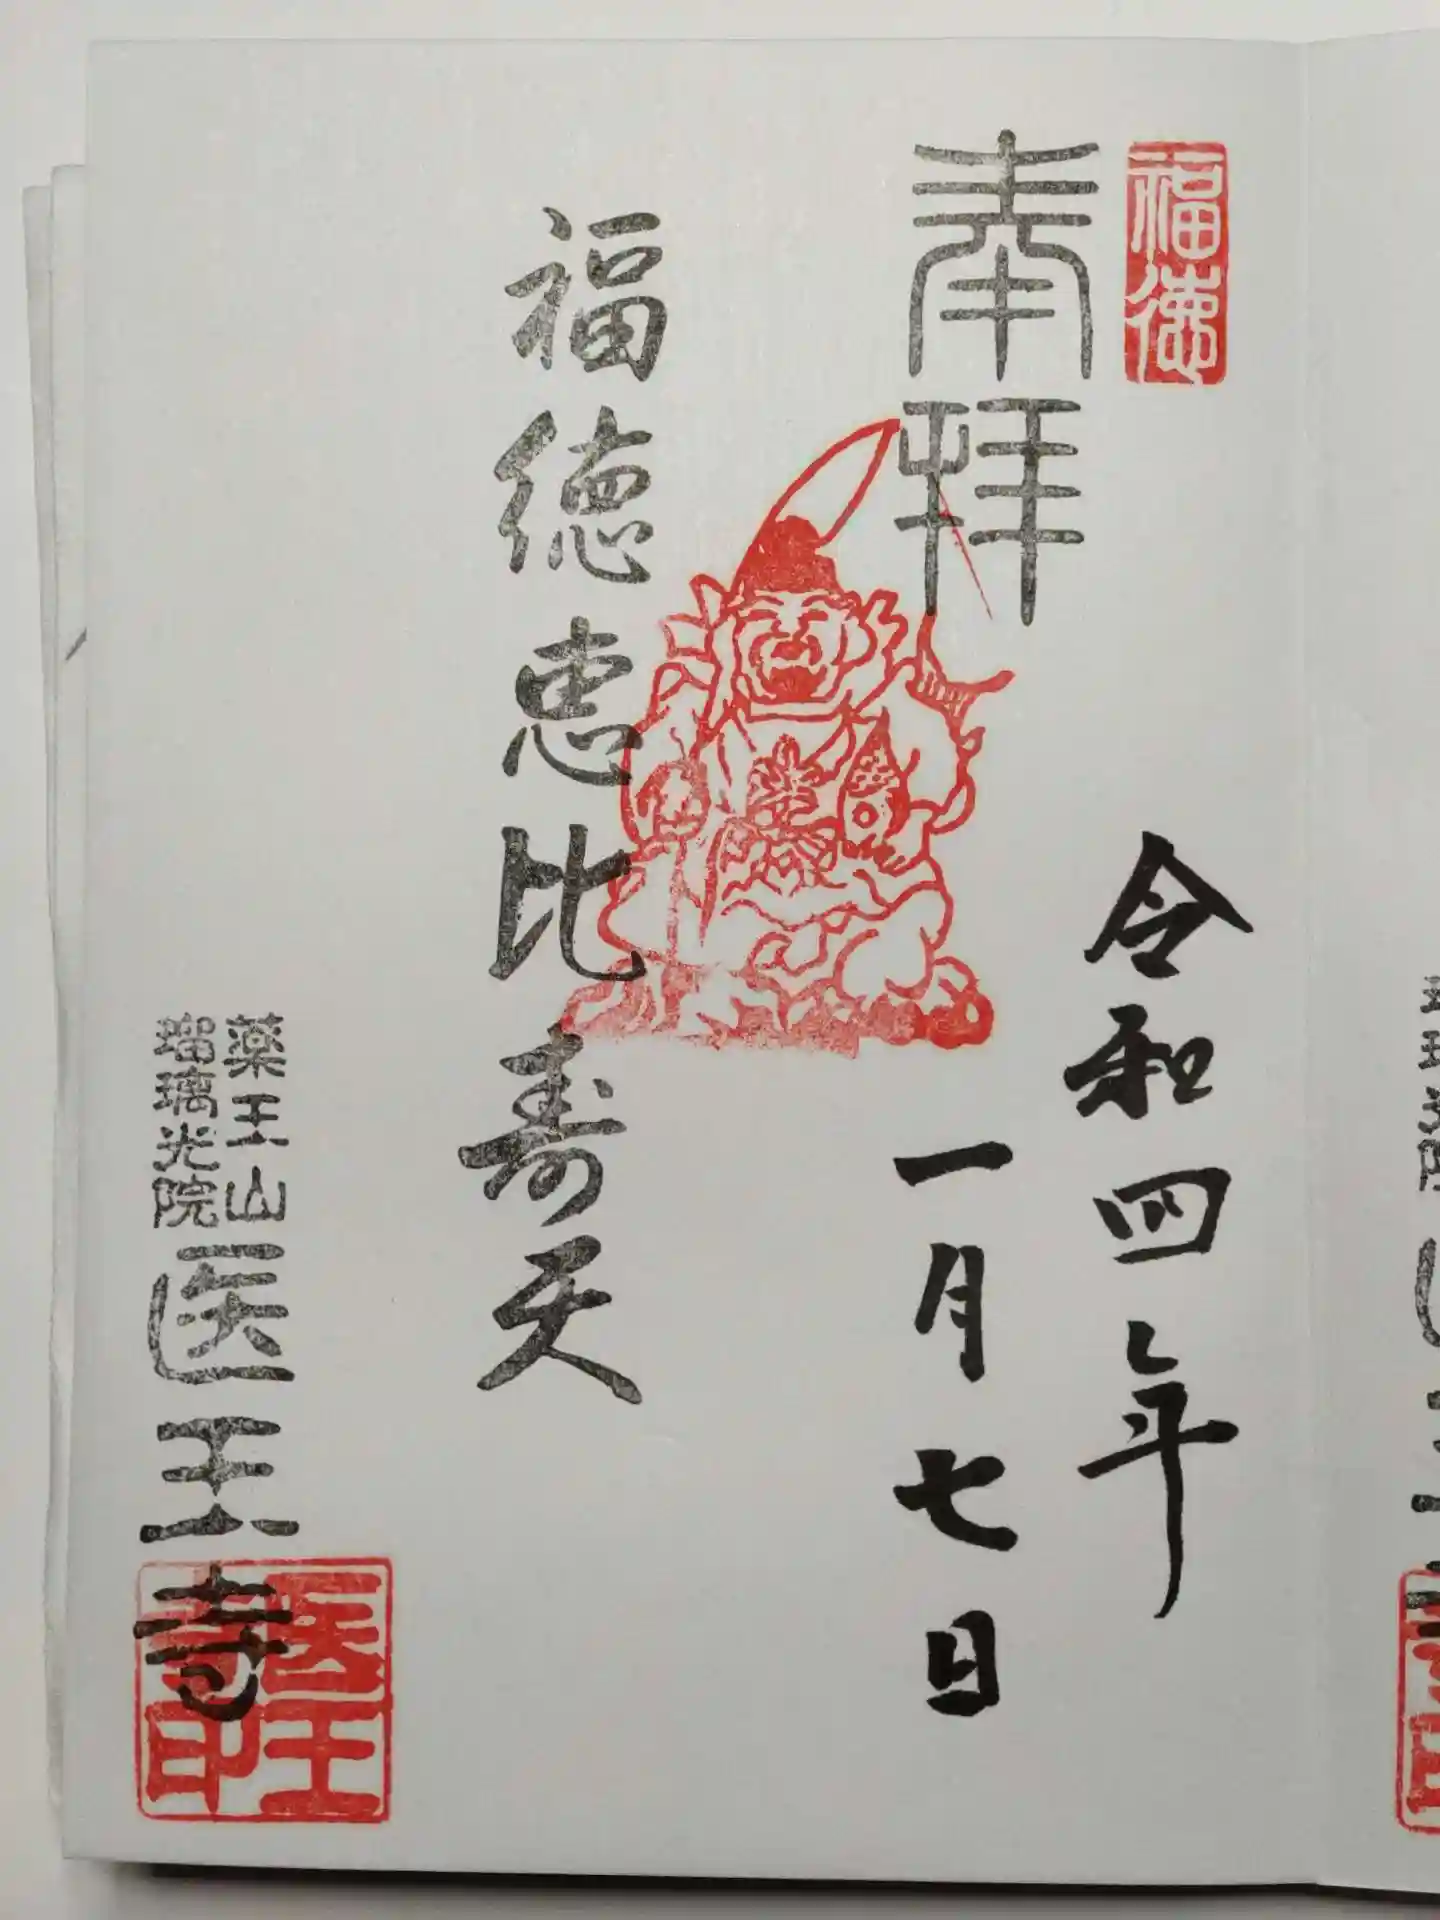 福徳
奉拝
令和四年
一月七日
福徳恵比寿天
薬王山
瑠璃光院
医王寺
医王寺印